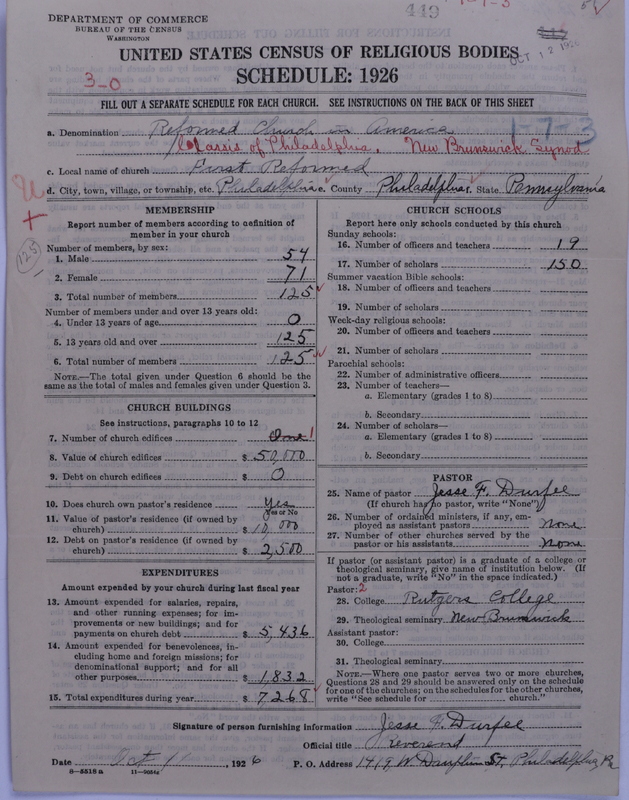 DEPARTMENT OF COMMERCE
BUREAU OF THE CENSUS
WASHINGTON
449
1-7-3
OCT 12 1926
UNITED STATES CENSUS OF RELIGIOUS BODIES
SCHEDULE: 1926
3-0
FILL OUT A SEPARATE SCHEDULE FOR EACH CHURCH. SEE INSTRUCTIONS ON THE BACK OF THIS SHEET
a. Denomination Reformed Church in America 1-7-3
Classis of Philadelphia. New Brunswick Synod.
c. Local name of church First Reformed
d. City, town, village, or township, etc. Philadelphia e. County Philadelphia f. State Pennsylvania
MEMBERSHIP
Report number of members according to definition of
member in your church
125
Number of members, by sex:
1. Male 54
2. Female 71
3. Total number of members 125
Number of members under and over 13 years old:
4. Under 13 years of age 0
5. 13 years old and over 125
6. Total number of members 125
NOTE.—The total given under Question 6 should be the
same as the total of males and females given under Question 3.
CHURCH BUILDINGS
See instructions, paragraphs 10 to 12
7. Number of church edifices One 1
8. Value of church edifices $ 50,000
9. Debt on church edifices $ 0
10. Does church own pastor's residence Yes
Yes or No
11. Value of pastor's residence (if owned by
church) $ 10,000
12. Debt on pastor's residence (if owned by
church) $ 2,500
EXPENDITURES
Amount expended by your church during last fiscal year
13. Amount expended for salaries, repairs,
and other running expenses; for im-
provements or new buildings; and for
payments on church debt $ 5,436
14. Amount expended for benevolences, in-
cluding home and foreign missions; for
denominational support; and for all
other purposes $ 1,832
15. Total expenditures during year $ 7268
CHURCH SCHOOLS
Report here only schools conducted by this church
Sunday schools:
16. Number of officers and teachers 19
17. Number of scholars 150
Summer vacation Bible schools:
18. Number of officers and teachers
19. Number of scholars
Week-day religious schools:
20. Number of officers and teachers
21. Number of scholars
Parochial schools:
22. Number of administrative officers
23. Number of teachers—
a. Elementary (grades 1 to 8)
b. Secondary
24. Number of scholars—
a. Elementary (grades 1 to 8)
b. Secondary
PASTOR
25. Name of pastor Jesse F. Durfee
(If church has no pastor, write "None")
26. Number of ordained ministers, if any, em-
ployed as assistant pastors None
27. Number of other churches served by the
pastor or his assistants None
If pastor (or assistant pastor) is a graduate of a college or
theological seminary, give name of institution below. (If
not a graduate, write "No" in the space indicated.)
Pastor: 2
28. College Rutgers College
29. Theological seminary New Brunswick
Assistant pastor:
30. College
31. Theological seminary
NOTE.—Where one pastor serves two or more churches,
Questions 28 and 29 should be answered only on the schedule
for one of the churches; on the schedules for the other churches,
write "See schedule for church."
Signature of person furnishing information Jesse F. Durfee
Official title Reverend
Date Oct 11, 1926 P. O. Address 1419 W. Dauphin St. Philadelphia, Pa
8-5518a 11-9054z